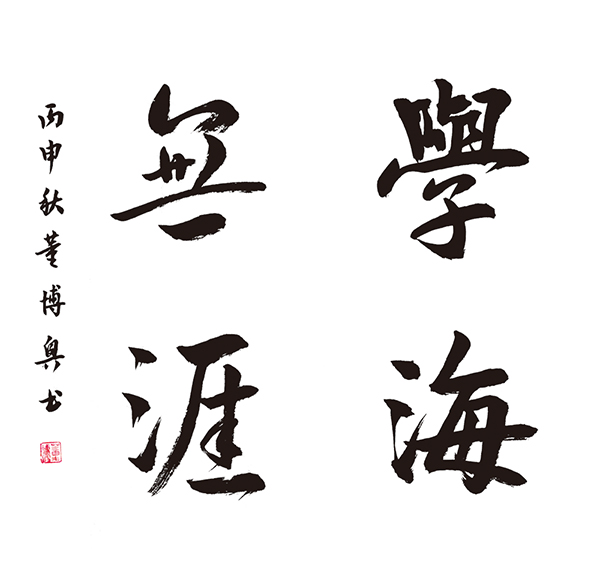 學海
無涯
丙申秋董博奥书